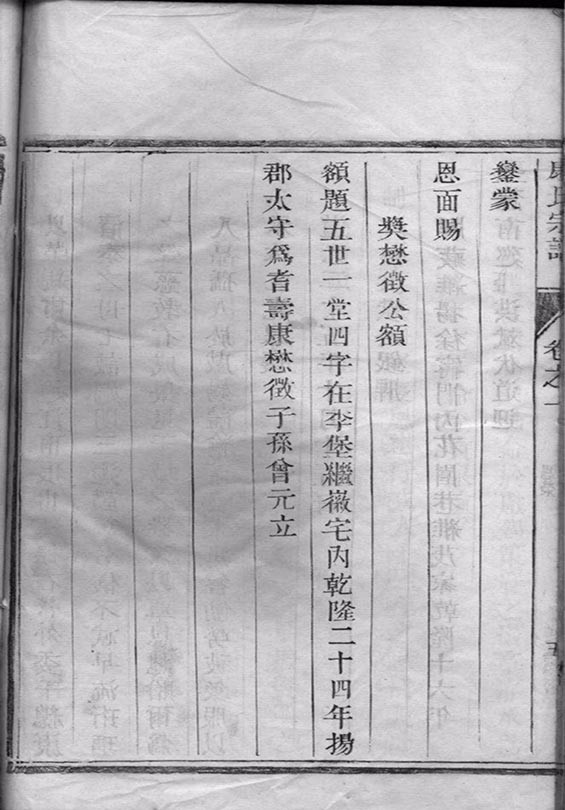 康氏宗譜 卷之一 五
鑾蒙
恩面賜
獎懋徵公額
額題五世一堂四字在李堡繼徽宅內乾隆二十四年揚
郡太守爲耆壽康懋徵子孫曾元立